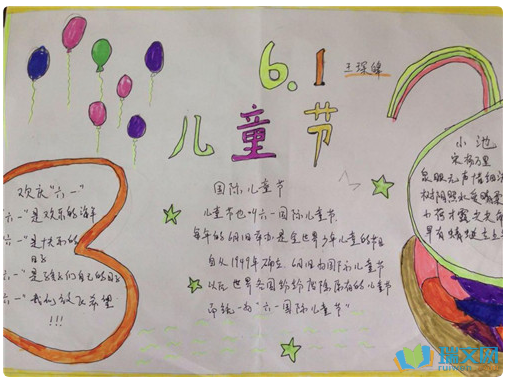 6.1
儿童节
欢庆"六一"
六一"是欢乐的海洋
六一"是快乐的
日子
六一"是我们自己的日子
六一"我们放飞希望
!!!
国际儿童节
儿童节也叫六一国际儿童节,
每年的6月1日举办,是全世界少年儿童的节日
自从1949年确立,6月1日为国际儿童节
以后,世界各国纷纷废除原有的儿童节
而统一为"六一国际儿童节"
小池
宋 杨万里
泉眼无声惜细
树阴照水爱晴柔
小荷才露尖尖角
早有蜻蜓立上
瑞文网
ruiwen